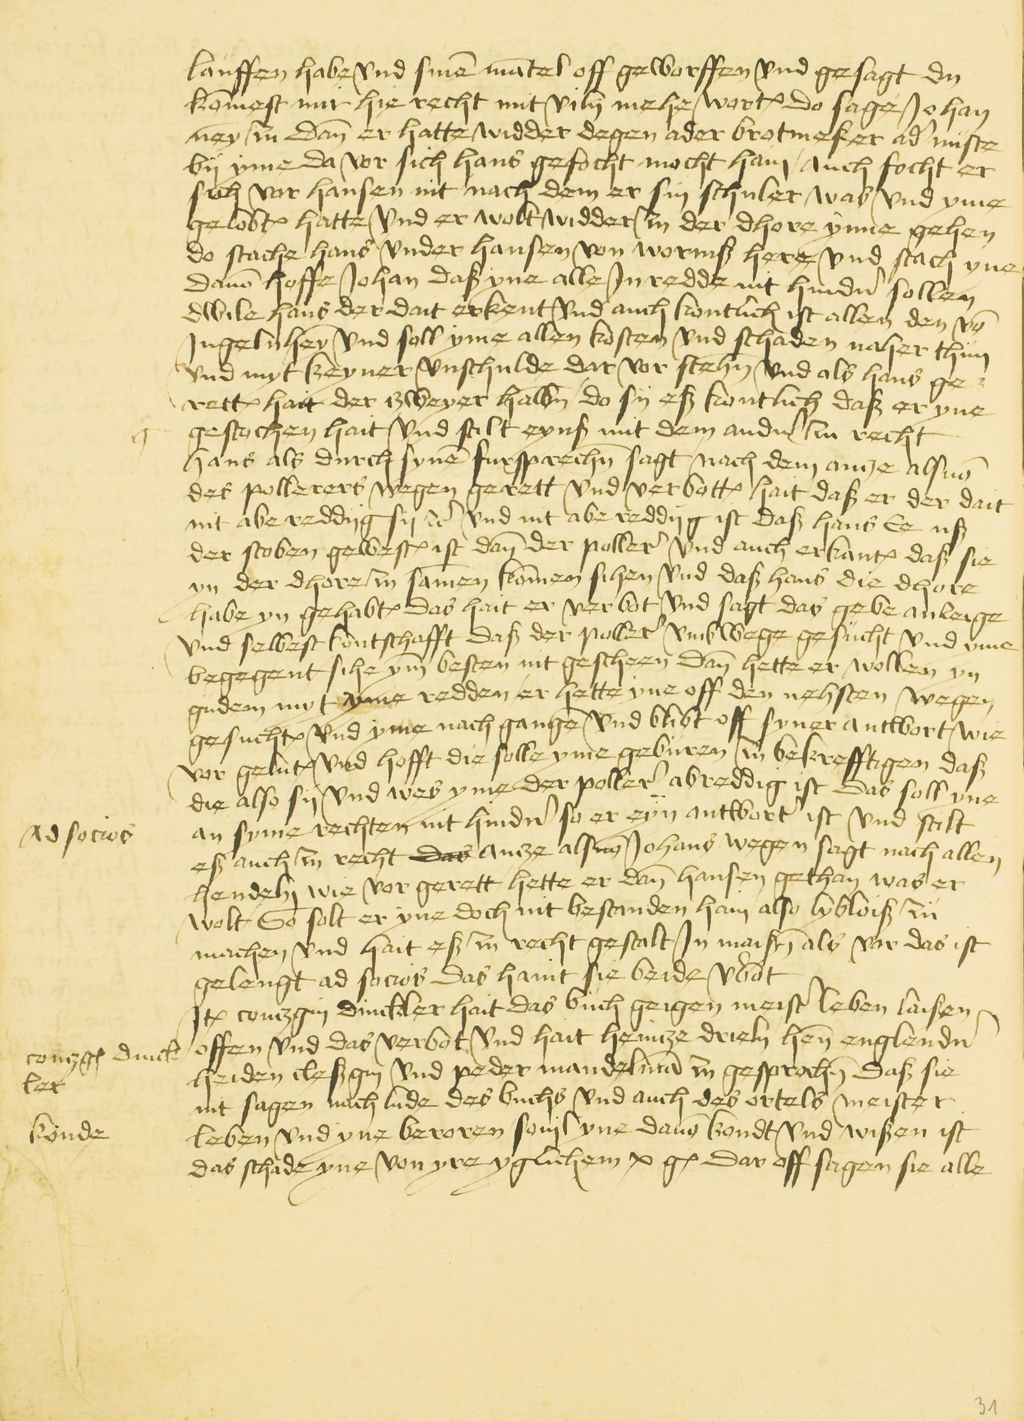 lauffen habe vnd sinē mātel off geworffen vnd gesagt du
kōmest mir hie recht mit viln̄ mehe wort⸗ do sage Johan
ney īn dan̄ er hatte widder degen ader brotmeßer ad' mste
bij yme da vor sich hans gefocht mocht han / auch focht er
sich vor hansen nit nach dem er sin schuler was vnd yme
gelobt⸗ hatte vnd er wolt widder īn der dhore ynne gehen
do stache hans vnder hansen von wormß here vnd stach yne
davō hoffe Johan daß yne alle Inredde nit hindn' sollen
dwile hans der dait erkent vnd auch kontlich ist allen den vō
Ingelnhey̅ vnd soll yme allen kosten vnd schaden naher thun
vnd myt keyner vnschulde dar vor stehn̄ vnd als hans ge⸗
rett⸗ hait der zweyer halbn̄ do sij eß kontlich daß er yne
gestochen hait vnd stilt eynß mit dem andn' īn recht
hans als durch synē fursprechn̄ sagt nach dem ancze alsuō
des pollerers wegen gerett vnd verbott⸗ hait daß er der dait
nit abereddijg sij ꝛc' vnd nit abereddijg ist daß hans Ee uß
der stoben gewest⸗ ist dan̄ der poller' vnd auch erkant⸗ daß sie
yn der dhore īn samen kōmen sihen vnd daß hans die dhore
habe yn gehabt⸗ das hait er verbot vnd sagt das gebe anleige
vnd selbest kontschafft daß der poller' vmbwege gesucht vnd yme
begegent sihe ym̄ besten nit gescheen dan̄ hette er wollen yn
gudem myt yme redden er hette yne off den nehsten wegen
gesucht⸗ vnd yme nach gangē vnd blibt off syner antwort wie
vor gelut⸗ vnd hofft die solle yme geburen īn bekrefftigen daß
die also sij vnd wes yme der poller' abreddig ist das soll yne
an syme rechten nit hindn' so er eyn̄ antwort' ist vnd stilt
eß auch īn recht das ancze alsuō Johans wegen sagt nach allen
hendeln̄ wie vor gerett hette er dan̄ hansen gethan was er
wolt So solt er yne doch nit bestanden han also lybloiß īn
machen vnd hait eß īn recht gestalt In maißn̄ als vor das ist
gelengt ad socios das haint sie beide v̓bot
It⸗ conczgin dinckler hait das buch geigen meist' leben laisen
offen vnd das verbot vnd hait heincze drieln̄ hen̄ englendn'
heiden cleßgin vnd peder mandelmā īn gesprochn̄ daß sie
nit sagen nach lude des buchs vnd auch des ortels meister
leben vnd yne beroren souil yne davō kondt vnd wißen ist
das schade yne von yre yglichem x g⸗ dar off sagen sie alle
Ad socios
conczg⸗ dinck
ler
kunde
31